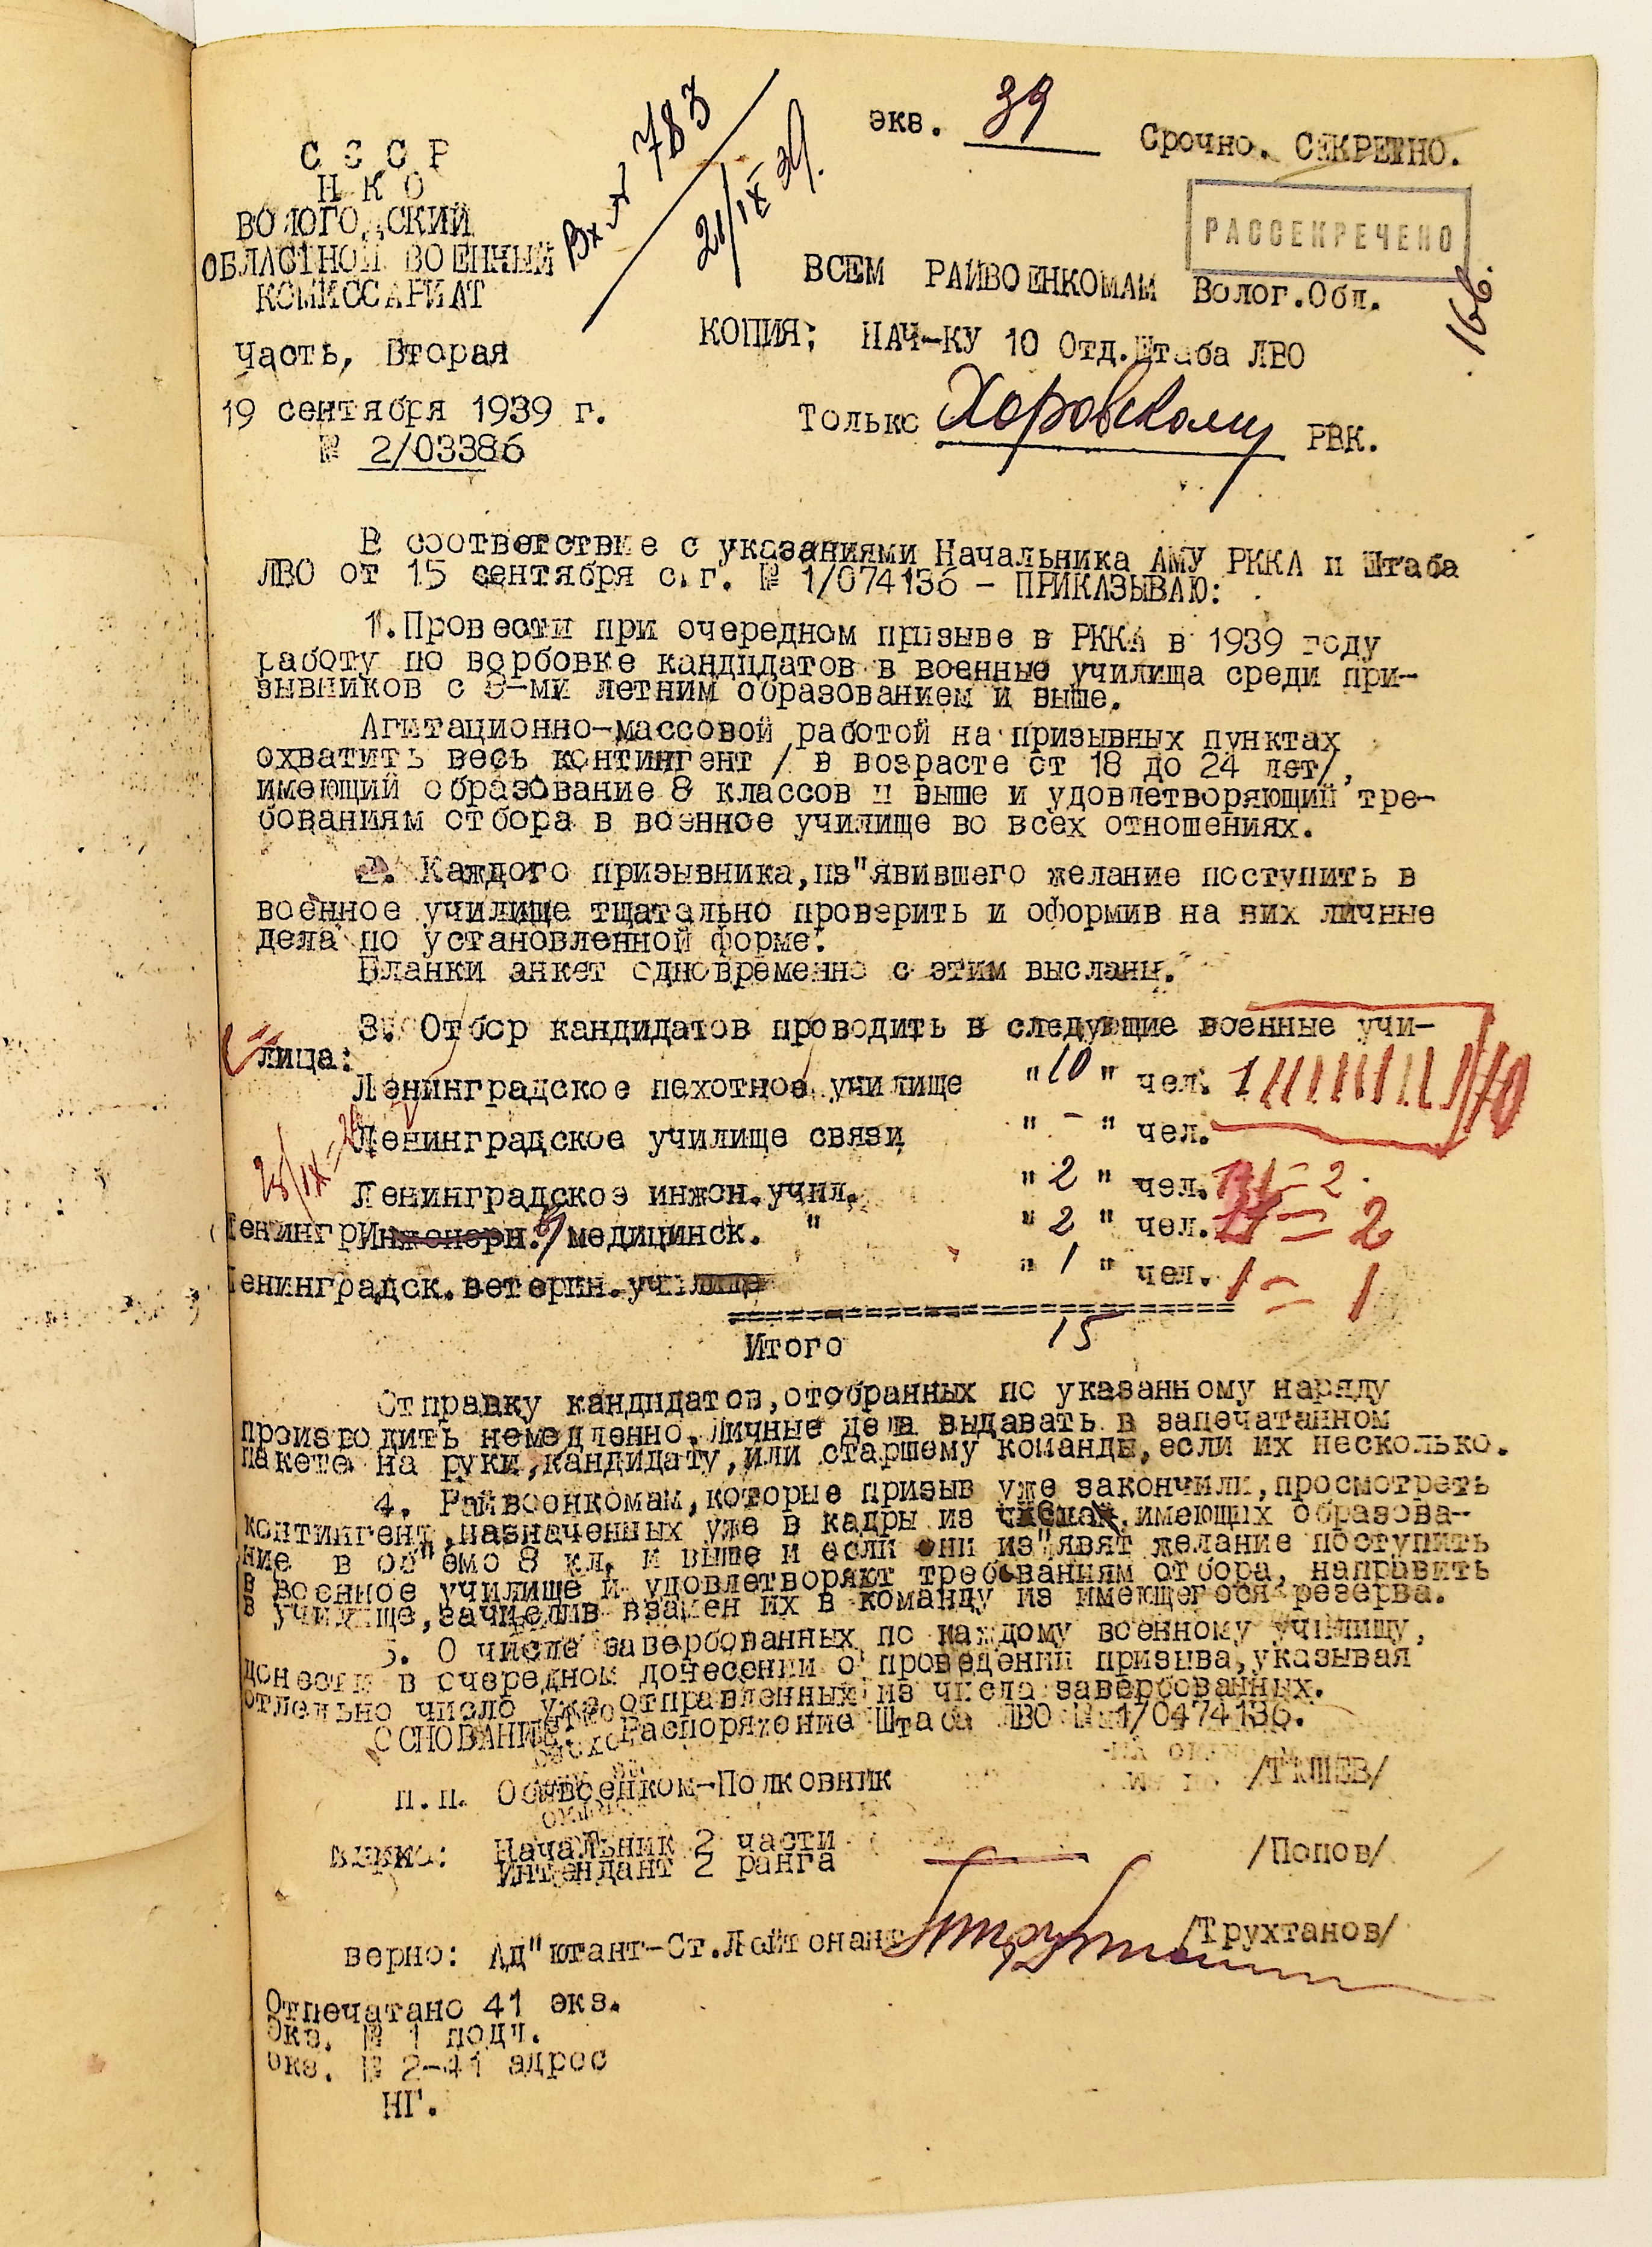 экз. 39
Срочно. СЕКРЕТНО.
С С С Р
Н К О
ВОЛОГОДСКИЙ
ОБЛАСТНОЙ ВОЕННЫЙ
КОМИССАРИАТ
Вх № 783
21/IX 39.
РАССЕКРЕЧЕНО
166.
ВСЕМ РАЙВОЕНКОМАМ Волог.Обл.
КОПИЯ: НАЧ-КУ 10 Отд.Штаба ЛВО
Часть, Вторая
19 сентября 1939 г.
№ 2/03386
Только Харовскому РВК.
В соответствие с указаниями Начальника АМУ РККА и Штаба
ЛВО от 15 сентября с.г. № 1/074136 - ПРИКАЗЫВАЮ:
1.Провести при очередном призыве в РККА в 1939 году
работу по ворбовке кандидатов в военные училища среди при-
зывников с 8-ми летним образованием и выше.
Агитационно-массовой работой на призывных пунктах
охватить весь контингент / в возрасте от 18 до 24 лет/,
имеющий образование 8 классов и выше и удовлетворяющий тре-
бованиям отбора в военное училище во всех отношениях.
2. Каждого призывника,из"явившего желание поступить в
военное училище тщательно проверить и оформив на них личные
дела по установленной форме.
Бланки анкет одновременно с этим высланы.
3. Отбор кандидатов проводить в следующие военные учи-
лица:
Ленинградское пехотное училище "10" чел. 10
Ленинградское училище связи " - " чел.
Ленинградское инжен.учил. " 2 " чел. = 2
Ленингр Инженерн. медицинск. " " 2 " чел. = 2
Ленинградск.ветерин.училище " 1 " чел. 1 = 1
Итого 15
Отправку кандидатов,отобранных по указанному наряду
производить немедленно.Личные дела выдавать в запечатанном
пакете на руки,кандидату,или старшему команды,если их несколько.
4. Райвоенкомам,которые призыв уже закончили,просмотреть
контингент,назначенных уже в кадры из числа имеющих образова-
ние в об"еме 8 кл. и выше и если они из"явят желание поступить
в военное училище и удовлетворяют требованиям отбора, направить
в училище,зачислив взамен их в команду из имеющегося резерва.
5. О числе завербованных по каждому военному училищу,
донести в очередном донесении о проведении призыва,указывая
отдельно число уже отправленных из числа завербованных.
ОСНОВАНИЕ: Распоряжение Штаба ЛВО № 1/0474136.
п.п. Облвоенком-Полковник /ТЯПШЕВ/
верно: Начальник 2 части
Интендант 2 ранга /Попов/
верно: Ад"ютант-Ст.Лейтенант /Трухтанов/
Отпечатано 41 экз.
Экз. № 1 подч.
Экз. № 2-41 адрес
НГ.